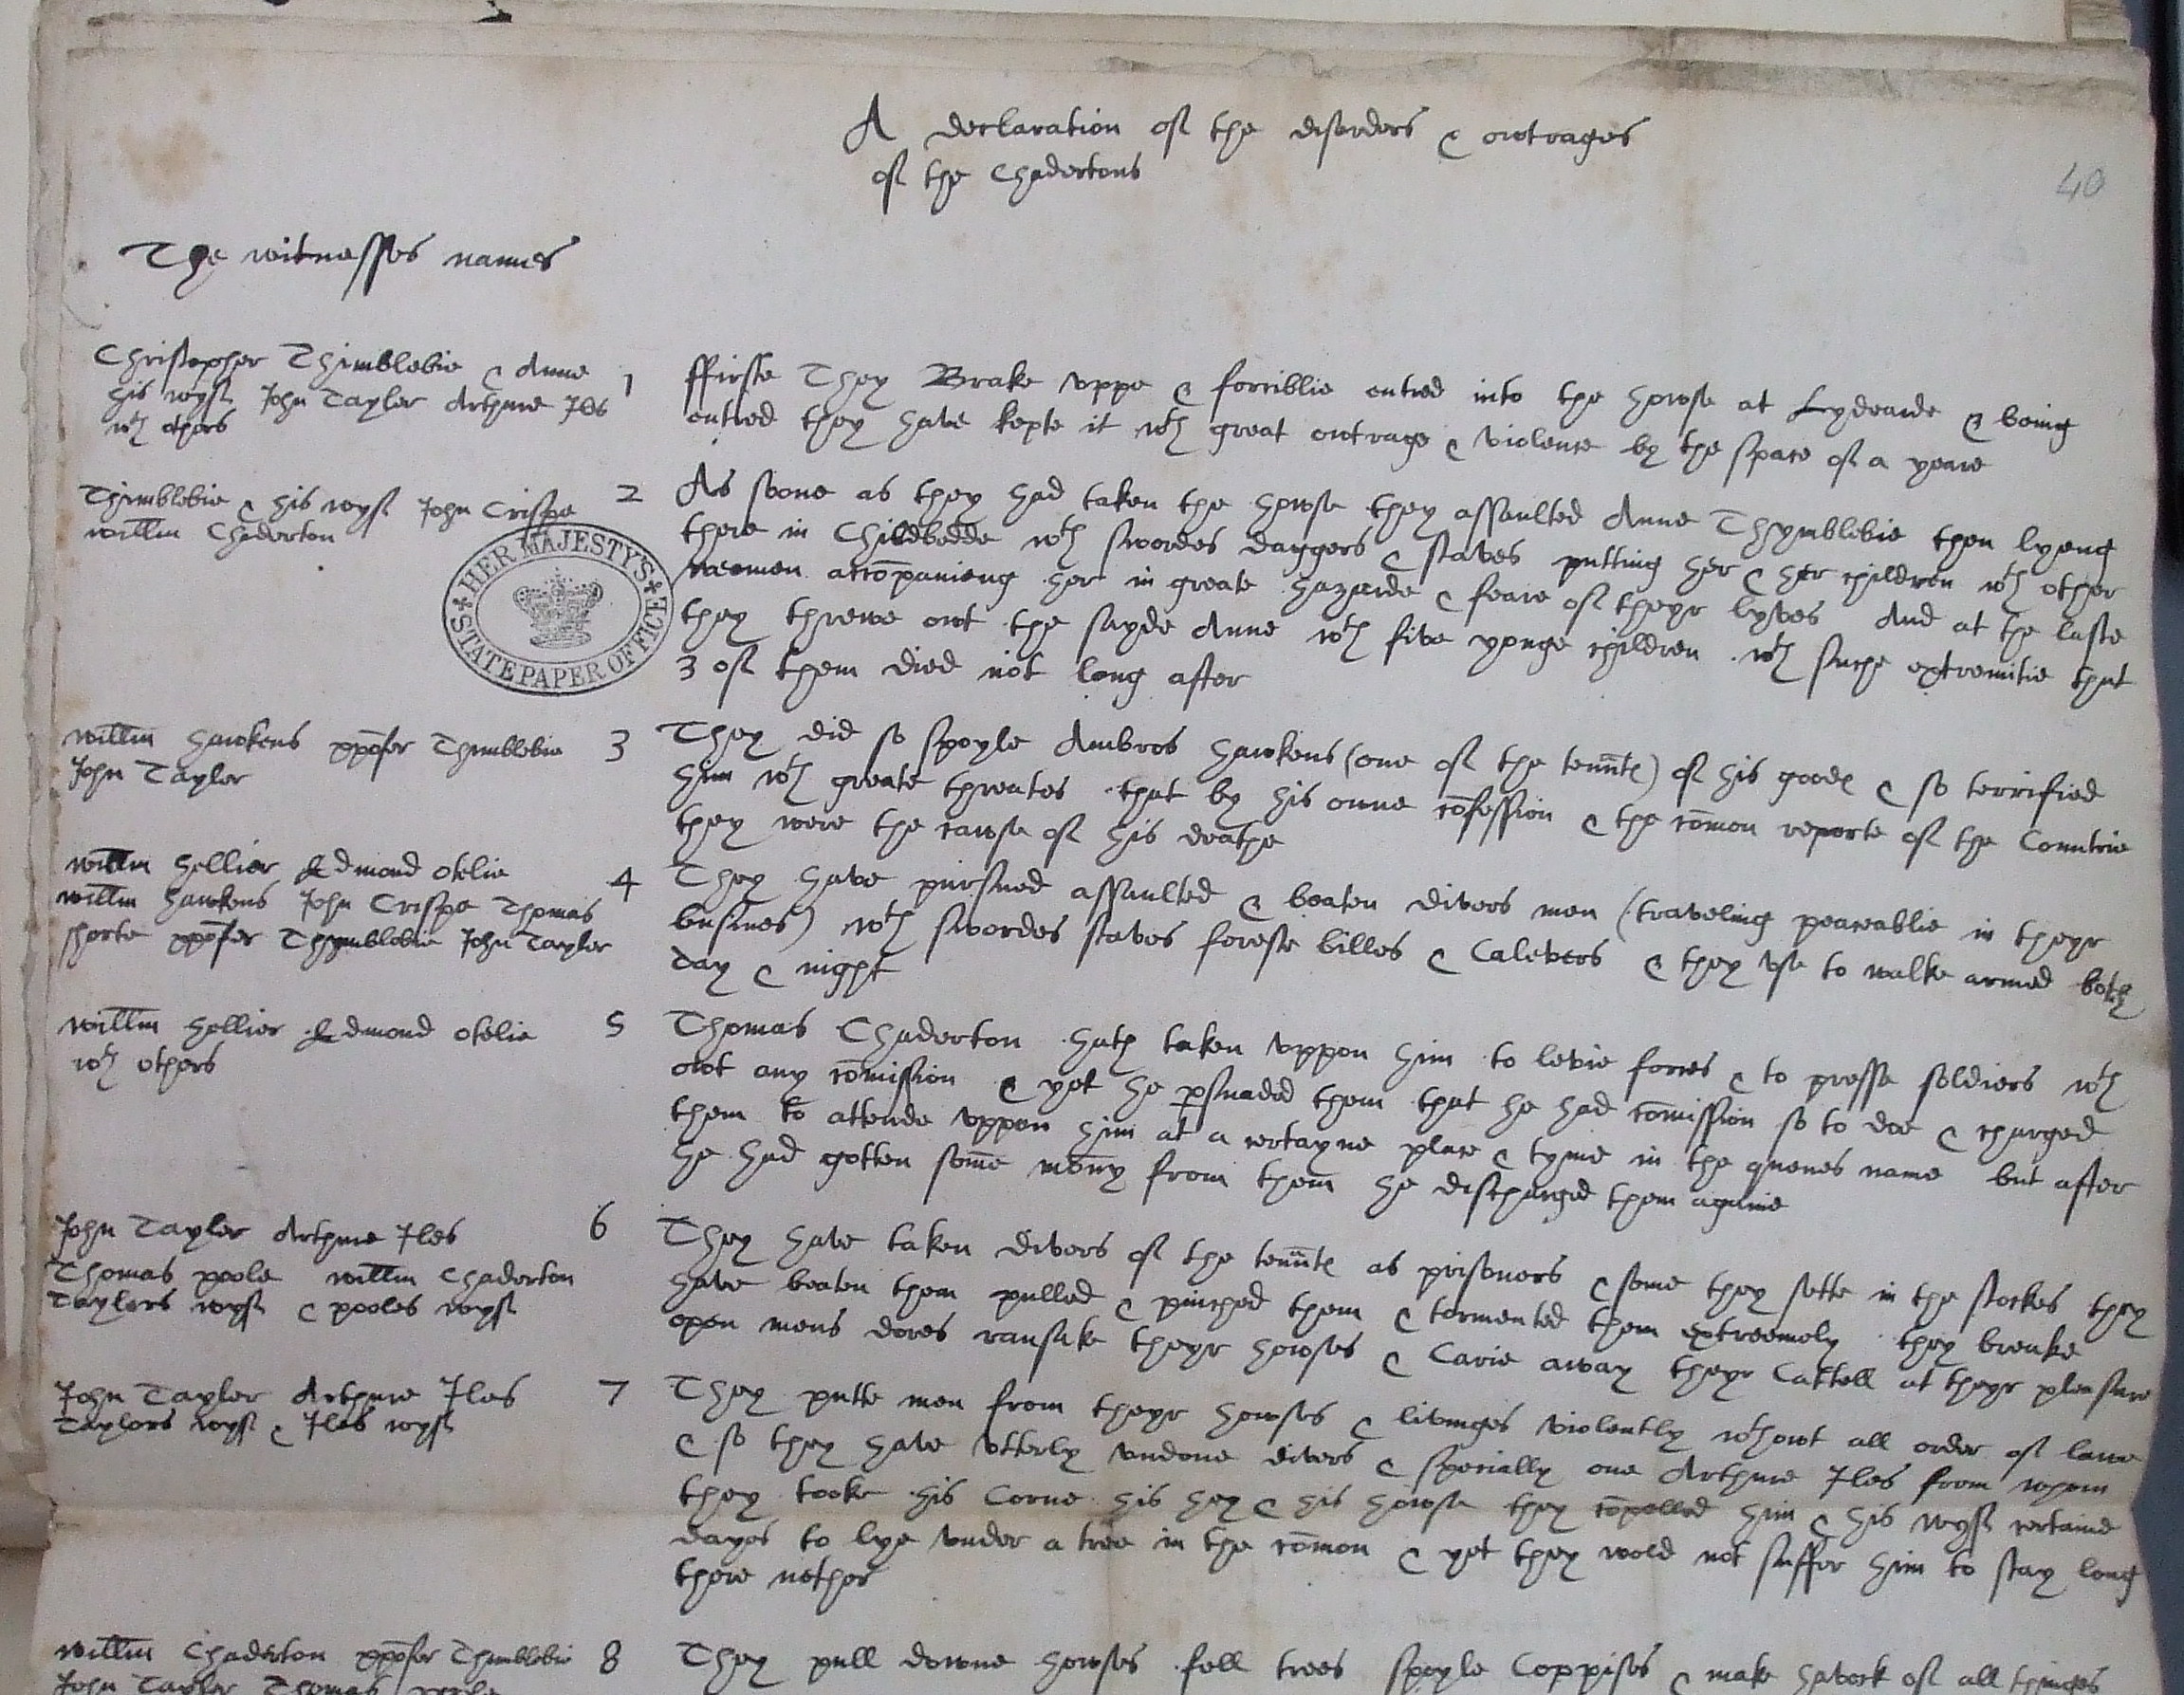 A declaration of the disorders & owtrages
of the Chadertons
40
The witnesses names
Christopher Thimblebie & Anne
his wyfe John Tayler Arthure Iles
wth others
1 ffirste They Brake uppe & forciblie entred into the howse at Lydearde & being
entred they have kepte it wth great owtrage & violence by the space of a yeare
Thimblebie & his wyfe John Crispe
willm Chaderton
2 As soone as they had taken the howse they assaulted Anne Thymblebie then lyeng
there in Childbedde wth swordes daggers & staves putting her & her children wth other
weomen accōpanieng her in greate hazarde & feare of theyr lyves And at the laste
they threwe owt the sayde Anne wth five yonge children wth suche extremitie that
3 of them died not long after
HER MAJESTY'S
STATE PAPER OFFICE
willm Hawkens xpōfer Thimblebie
John Tayler
3 They did so spoyle Ambros Hawkens (one of the tennte) of his goode & so terrified
him wth greate threates that by his owne cōfession & the cōmon reporte of the Countrie
they were the cawse of his deathe
willm Hellier Edmond Okelie
willm Hawkens John Crispe Thomas
shorte xpōfer Thymblebie John Tayler
4 They have pursued assaulted & beaten divers men (traveling peaceablie in theyr
busines) wth swordes staves foreste billes & Calevers & they use to walke armed both
day & night
willm Hellier Edmond Okelie
wth others
5 Thomas Chaderton hath taken uppon him to levie forces & to presse soldiers wth
owt any cōmission & yet he pswaded them that he had cōmission so to doe & charged
them to attende uppon him at a certayne place & tyme in the quenes name but after
he had gotten some mony from them he discharged them againe
John Tayler Arthure Iles
Thomas poole willm Chaderton
Taylers wyfe & pooles wyfe
6 They have taken divers of the tennte as prisoners & some they sette in the stockes they
have beaten them pulled & pinched them & tormented them extreemely they breake
open mens dores ransake theyr howses & Carie away theyr Cattell at theyr pleasure
John Tayler Arthure Iles
Taylors wyfe & Iles wyfe
7 They putte men from theyr howses & livinges violently wthowt all order of lawe
& so they have utterly undone divers & specially one Arthure Iles from whom
they tooke his Corne his hey & his howse they cōpelled him & his wyfe certaine
dayes to lye under a tree in the cōmon & yet they wold not suffer him to stay long
there nether
willm Chaderton xpōfer Thimblebie
John Tayler Thomas poole
8 They pull downe howses fell trees spoyle Coppises & make havock of all thinges